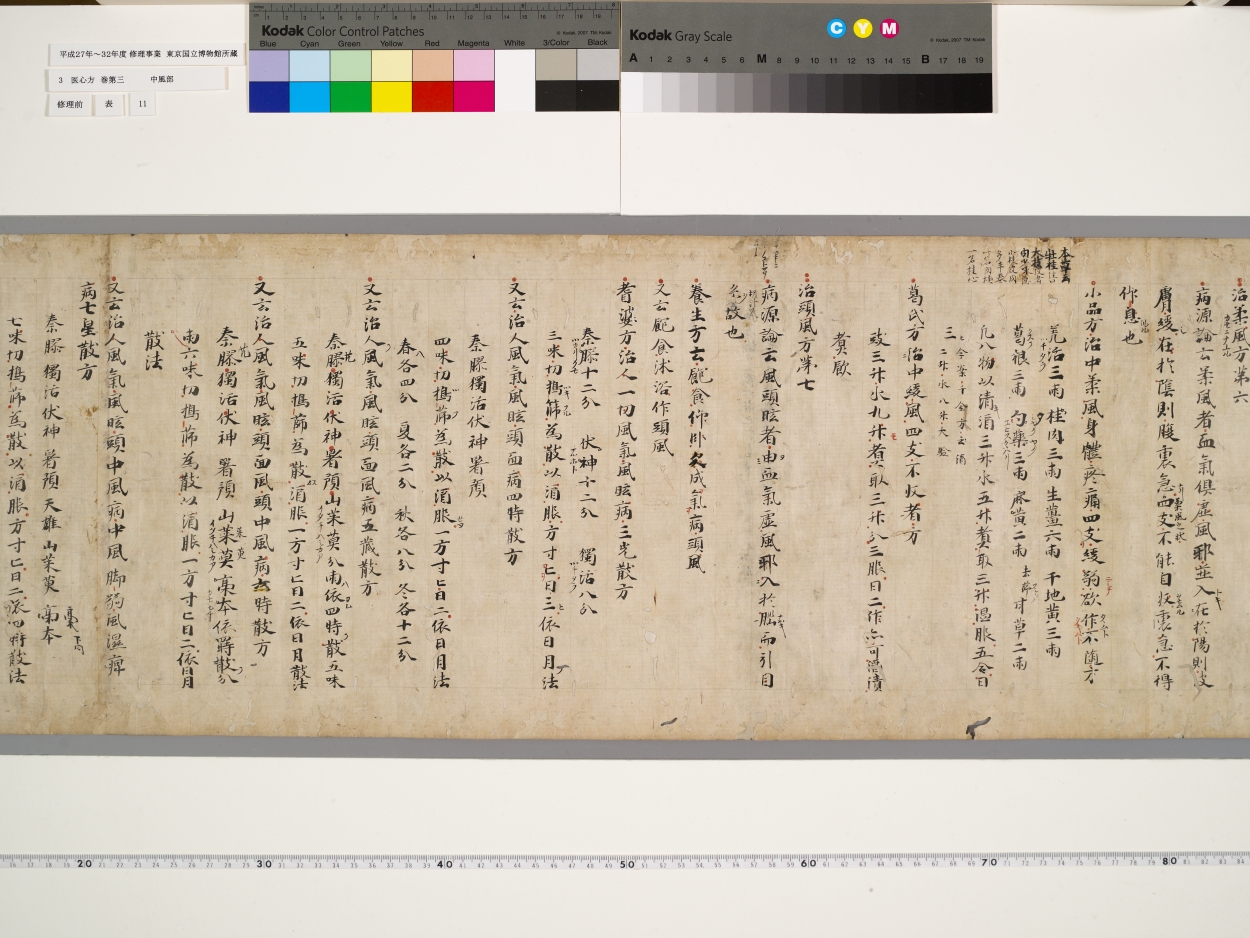 平成27年～32年度 修理事業 東京国立博物館所蔵
3 医心方 巻第三 中風部
修理前 表 11
Kodak Color Control Patches
© Kodak, 2007 TM: Kodak
Blue Cyan Green Yellow Red Magenta White 3/Color Black
Kodak Gray Scale
C Y M
© Kodak, 2007 TM: Kodak
A 1 2 3 4 5 6 M 8 9 10 11 12 13 14 15 B 17 18 19
治柔風方第六
病源論云柔風者血氣俱虛風邪並入在於陽則皮
膚緩在於陰則腹裏急四支不能自收裏急不得
仰息也
小品方治中柔風身體疼痛四支緩弱欲作不隨方
羌活三兩 桂肉三兩 生薑六兩 干地黃三兩
葛根三兩 勺藥三兩 麻黃二兩 甘草二兩
凡八物以清酒三升水五升煮取三升温服五合日
三
葛氏方治中緩風四支不收者方
豉三升水九升煮取三升分三服日二作亦可酒漬
煮飲
治頭風方第七
病源論云風頭眩者由血氣虛風邪入於腦而引目
系故也
養生方云飽食仰臥久成氣病頭風
又云飽食沐浴作頭風
耆婆方治人一切風氣風眩病三光散方
秦膠十二分 伏神十二分 獨活八分
三味切搗篩為散以酒服方寸匕日三依日月法
又云治人風氣風眩頭面病四時散方
秦膠獨活伏神署預
四味切搗篩為散以酒服一方寸匕日二依日月法
春各四分 夏各二分 秋各八分 冬各十二分
又云治人風氣風眩頭面風病五藏散方
秦膠獨活伏神署預山茱萸分兩依四時散五味
五味切搗篩為散酒服一方寸匕日二依日月散法
又云治人風氣風眩頭面風頭中風病 時散方
秦膠獨活伏神 署預 山茱萸 藁本 依 散分
兩六味切搗篩為散以酒服一方寸匕日二依日月
散法
又云治人風氣風眩頭中風病中風脚弱風濕痺
病七星散方
秦膠 獨活 伏神 署預 天雄 山茱萸 藁本
七味切搗篩為散以酒服方寸匕日二依四時散法
20 30 40 50 60 70 80